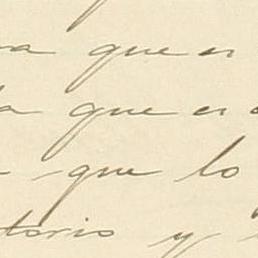 que es
que es
que lo
torio y